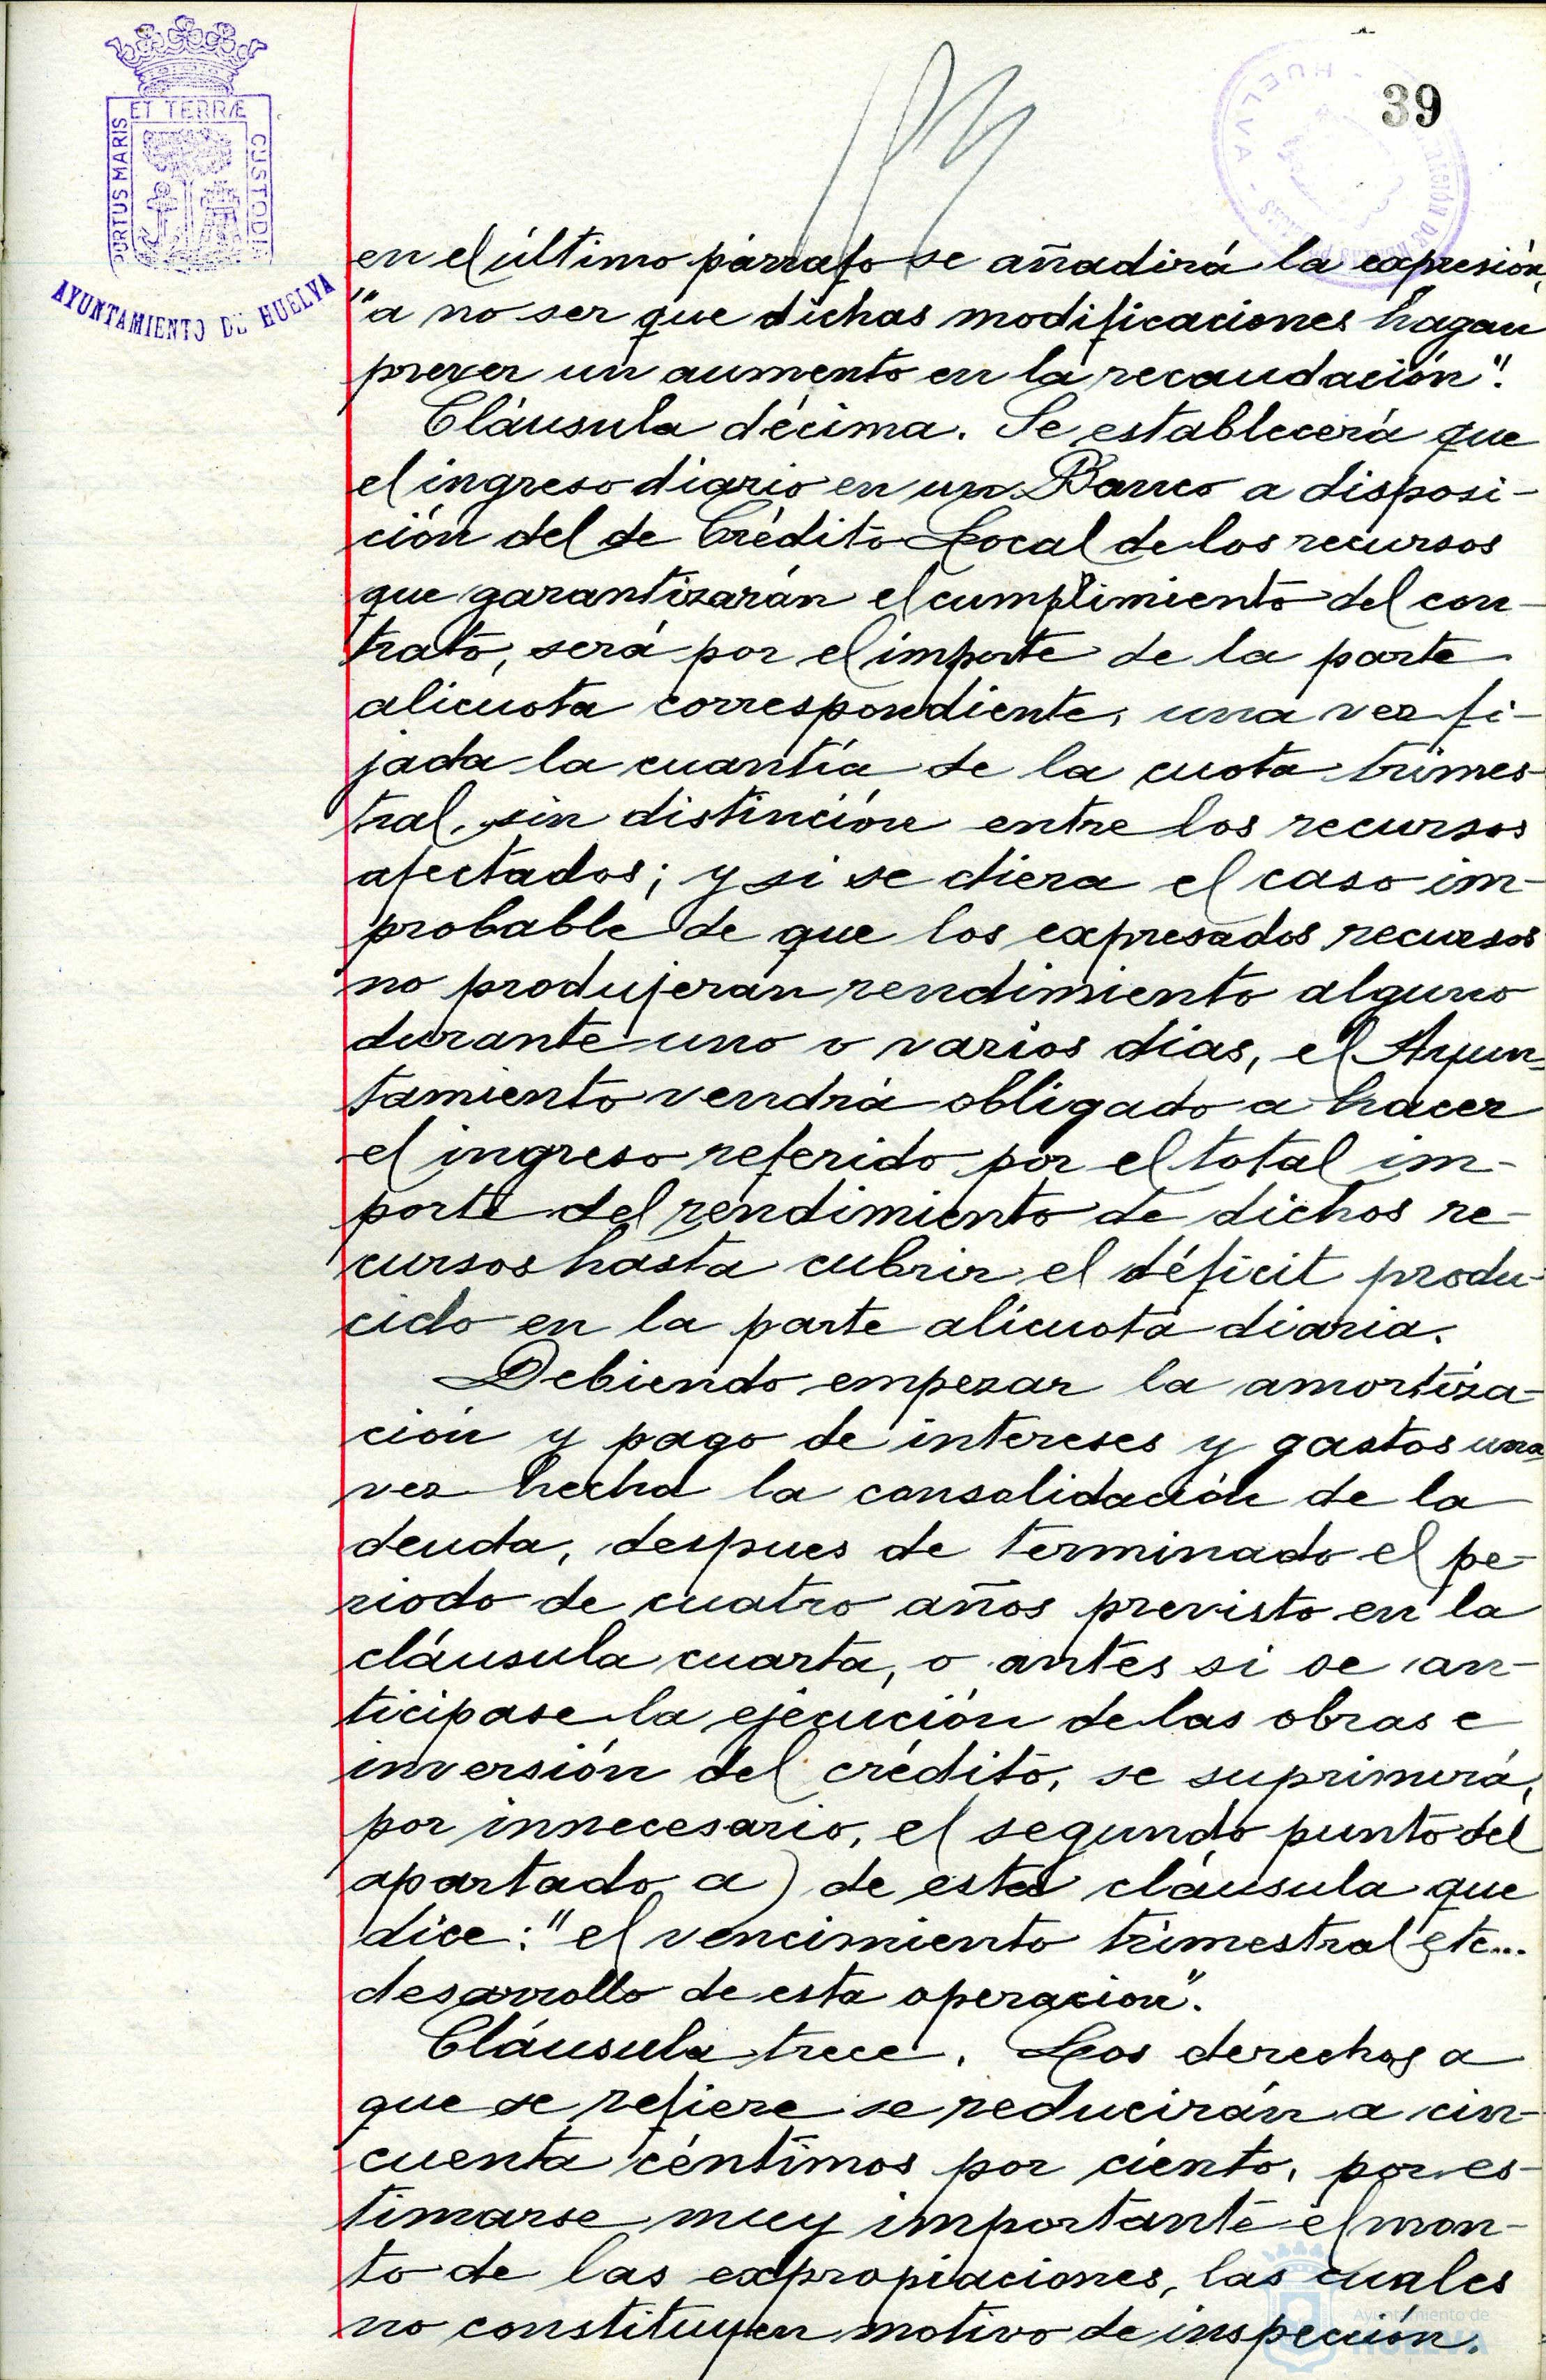 39
ET TERRÆ
PORTUS MARIS
CUSTODIA
AYUNTAMIENTO DE HUELVA
HUELVA
en el último párrafo se añadirá la expresión,
"a no ser que dichas modificaciones hagan
prever un aumento en la recaudación".
Cláusula décima. Se establecerá que
el ingreso diario en un Banco a disposi-
ción del de Crédito Local de los recursos
que garantizarán el cumplimiento del con-
trato, será por el importe de la parte
alicuota correspondiente, una vez fi-
jada la cuantía de la cuota trimes-
tral, sin distinción entre los recursos
afectados; y si se diera el caso im-
probable de que los expresados recursos
no produjeran rendimiento alguno
durante uno o varios días, el Ayun-
tamiento vendrá obligado a hacer
el ingreso referido por el total im-
porte del rendimiento de dichos re-
cursos hasta cubrir el déficit produ-
cido en la parte alicuota diaria.
Debiendo empezar la amortiza-
ción y pago de intereses y gastos una
vez hecha la consolidación de la
deuda, despues de terminado el pe-
riodo de cuatro años previsto en la
cláusula cuarta, o antes si se an-
ticipase la ejecución de las obras e
inversión del crédito, se suprimirá,
por innecesario, el segundo punto del
apartado a) de esta cláusula que
dice: "el vencimiento trimestral etc...
desarrollo de esta operación".
Cláusula trece. Los derechos a
que se refiere se reducirán a cin-
cuenta céntimos por ciento, por es-
timarse muy importante el mon-
to de las expropiaciones, las cuales
no constituyen motivo de inspección.
Ayuntamiento de
HUELVA